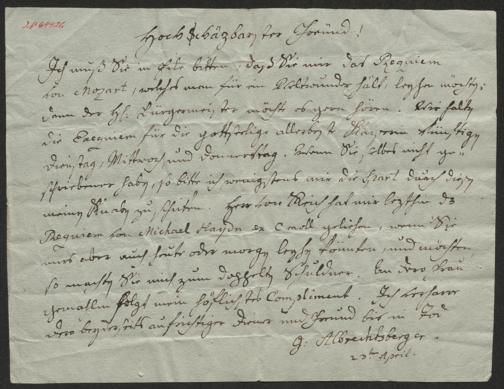 Hochschäzbarster Freünd!
Ich muß Sie in Eile bitten, daß Sie mir das Requiem
von Mozart, welches man für ein Weltwunder hält leyhen möchten;
denn der H: Bürgermeister möchte es gern hören. Wir halten
die Exequien für die gottseelige allerbeste Kayserin künftigen
Dienstag, Mittwoch und Donnerstag. Wenn Sie selbes nicht ge-
schriebener haben, so bitte ich wenigstens mir die Spart durch diesen
meinen Knaben zu schicken. Herr von Reich hat mir leztens das
Requiem von Michael Haydn ex C moll geliehen, wenn Sie
mirs aber auch heute oder morgen leyhen könnten, und möchten,
so machten Sie mich zum doppelten Schuldner. An dero Frau
gemahlin folgt mein höflichstes Compliment. Ich verharre
dero beyderseits aufrichtiger Diener und Freund bis in Tod
G. Albrechtsberger.
23ten April.